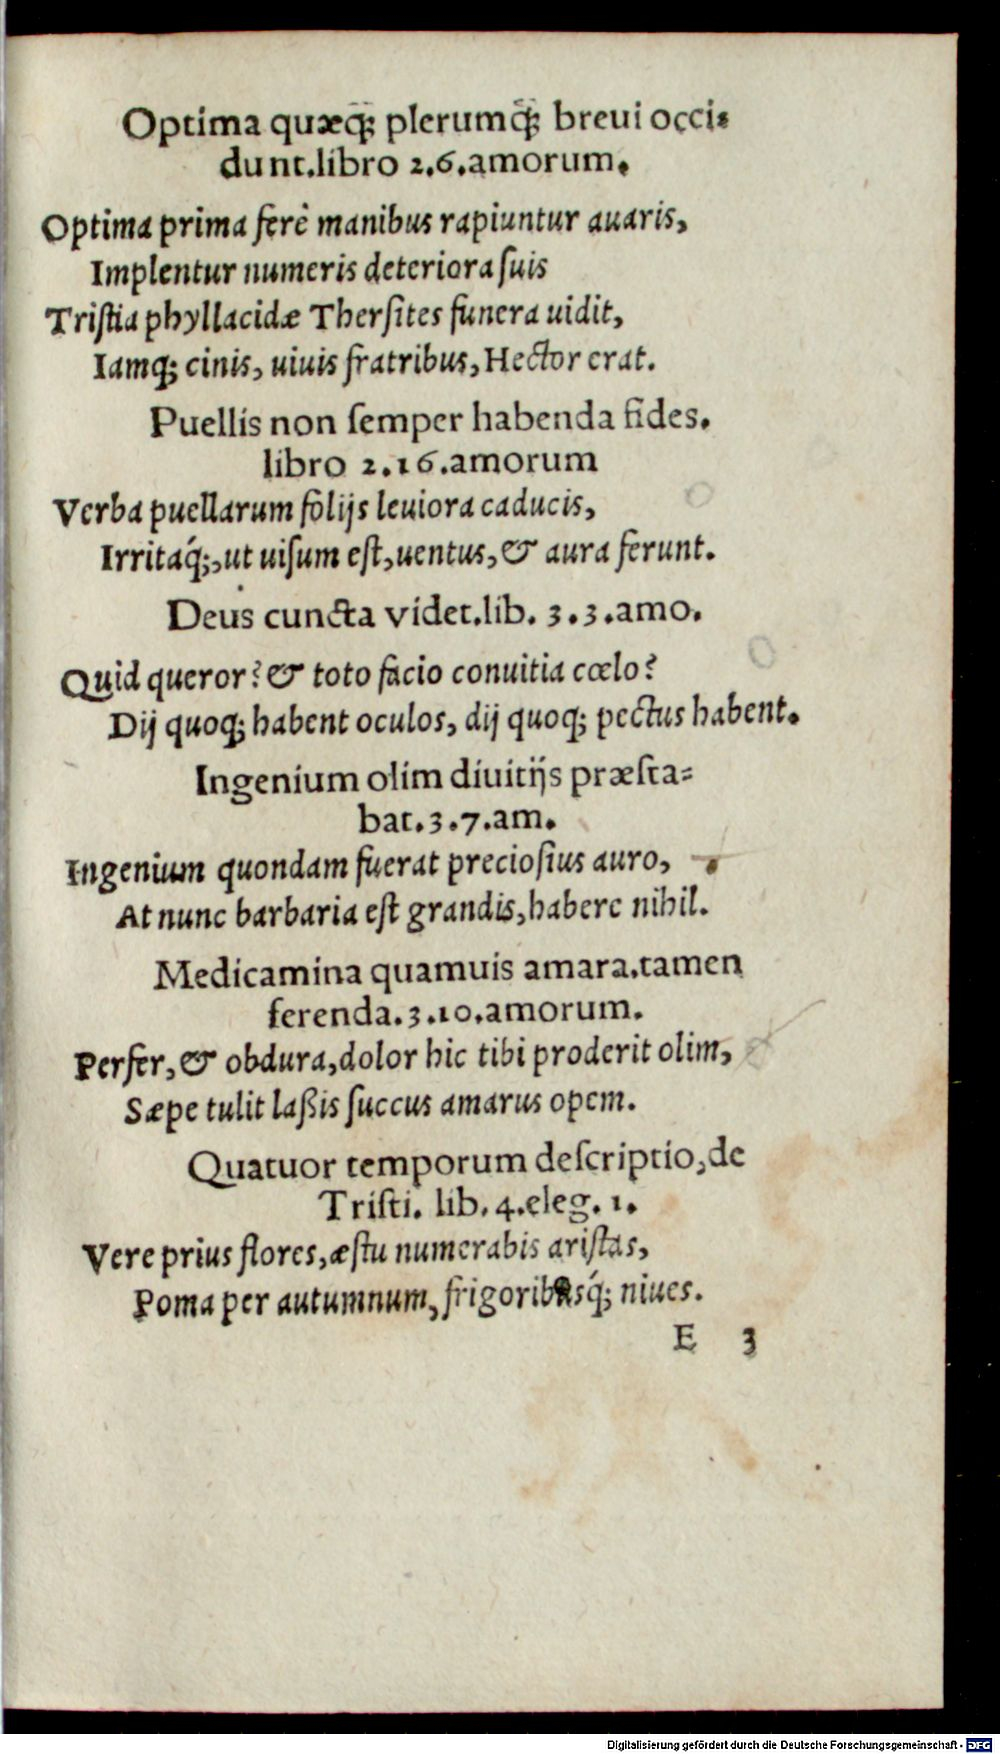 Optima quæq; plerumq; breui occi-
dunt.libro 2.6.amorum.
Optima prima ferè manibus rapiuntur auaris,
Implentur numeris deteriora ſuis
Triſtia phyllacidæ Therſites funera uidit,
Iamq; cinis, uiuis fratribus, Hector erat.
Puellis non ſemper habenda fides.
libro 2.16.amorum
Verba puellarum folijs leuiora caducis,
Irritaq́;,ut uiſum eſt,uentus,& aura ferunt.
Deus cuncta videt.lib. 3.3.amo.
Quid queror? & toto facio conuitia cœlo?
Dij quoq; habent oculos, dij quoq; pectus habent.
Ingenium olim diuitijs præſta-
bat.3.7.am.
Ingenium quondam fuerat precioſius auro,
At nunc barbaria eſt grandis,habere nihil.
Medicamina quamuis amara.tamen
ferenda.3.10.amorum.
Perfer,& obdura,dolor hic tibi proderit olim,
Sæpe tulit laßis ſuccus amarus opem.
Quatuor temporum deſcriptio,de
Triſti. lib. 4.eleg. 1.
Vere prius flores,æſtu numerabis ariſtas,
Poma per autumnum, frigoribusq́; niues.
E 3
Digitalisierung gefördert durch die Deutsche Forschungsgemeinschaft - DFG